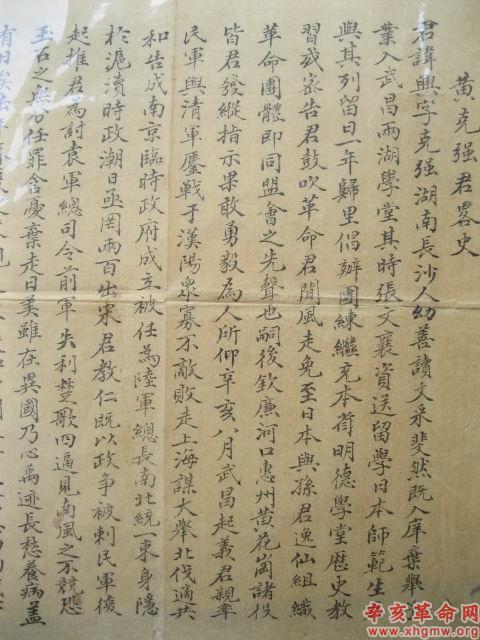 黃克强君畧史
君諱興字克强湖南長沙人幼善讀文采斐然既入庠棄舉
業入武昌兩湖學堂其時張文襄資送留學日本師範生
與其列留日一年歸里倡辦團練繼充本省明德學堂歷史教
習或密告君鼓吹革命君聞風走免至日本與孫君逸仙組織
革命團體即同盟會之先聲也嗣後欽廉河口惠州黃花崗諸役
皆君發縱指示果敢勇毅為人所仰辛亥八月武昌起義君親率
民軍與清軍鏖戰于漢陽衆寡不敵敗走上海謀大舉北伐適共
和告成南京臨時政府成立被任為陸軍總長南北統一東身隱
於滬瀆時政潮日亟罔兩百出宋君教仁既以政争被刺民軍復
起推君為討袁軍總司令前軍失利楚歌四逼見南風之不競恐
玉石之無分任罪含憂棄走日美雖在異國乃心禹迹長愁養病蓋
有日矣
辛亥革命网
www.xhgmw.org